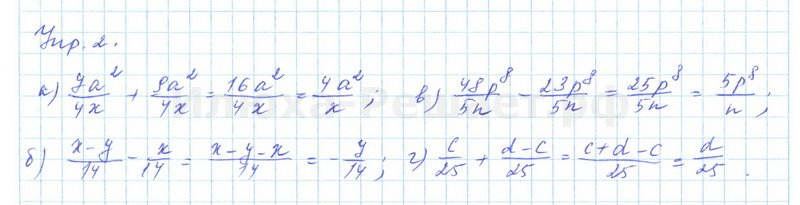 Упр. 2.
а) 7a²/4x + 9a²/4x = 16a²/4x = 4a²/x ; в) 48p⁸/5n − 23p⁸/5n = 25p⁸/5n = 5p⁸/n ;
б) x−y/14 − x/14 = x−y−x/14 = −y/14 ; г) c/25 + d−c/25 = c+d−c/25 = d/25 .